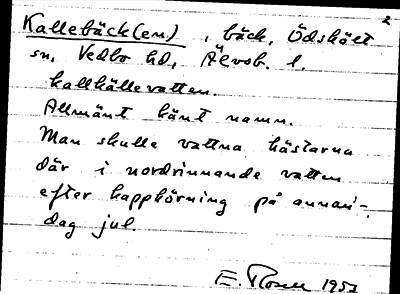 2
Kallebäck(en), bäck, Ödskölt
sn, Vedbo hd, Älvsb. l.
kallkällevatten.
Allmänt känt namn.
Man skulle vattna hästarna
där i nordrinnande vatten
efter kappkörning på annan-
dag jul.
E. Rosell 1957